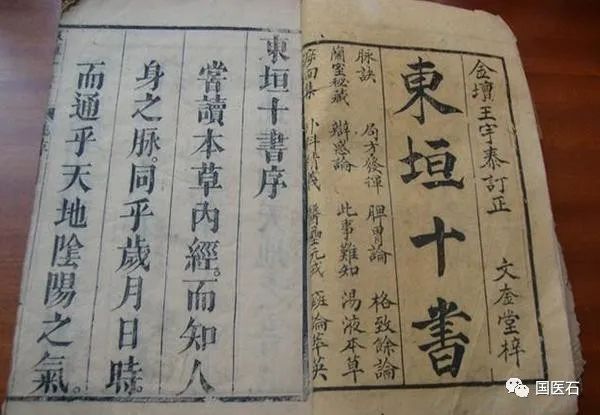 金壇王宇泰訂正
東垣十書
文奎堂梓
脉訣 局方發揮 脾胃論 格致餘論
蘭室秘藏 辨惑論 此事難知 湯液本草
洄集 外科精義 醫壘元戎 癍論萃英
東垣十書序
嘗讀本草內經。而知人
身之脉。同乎歲月日時。
而通乎天地陰陽之氣。
国医石